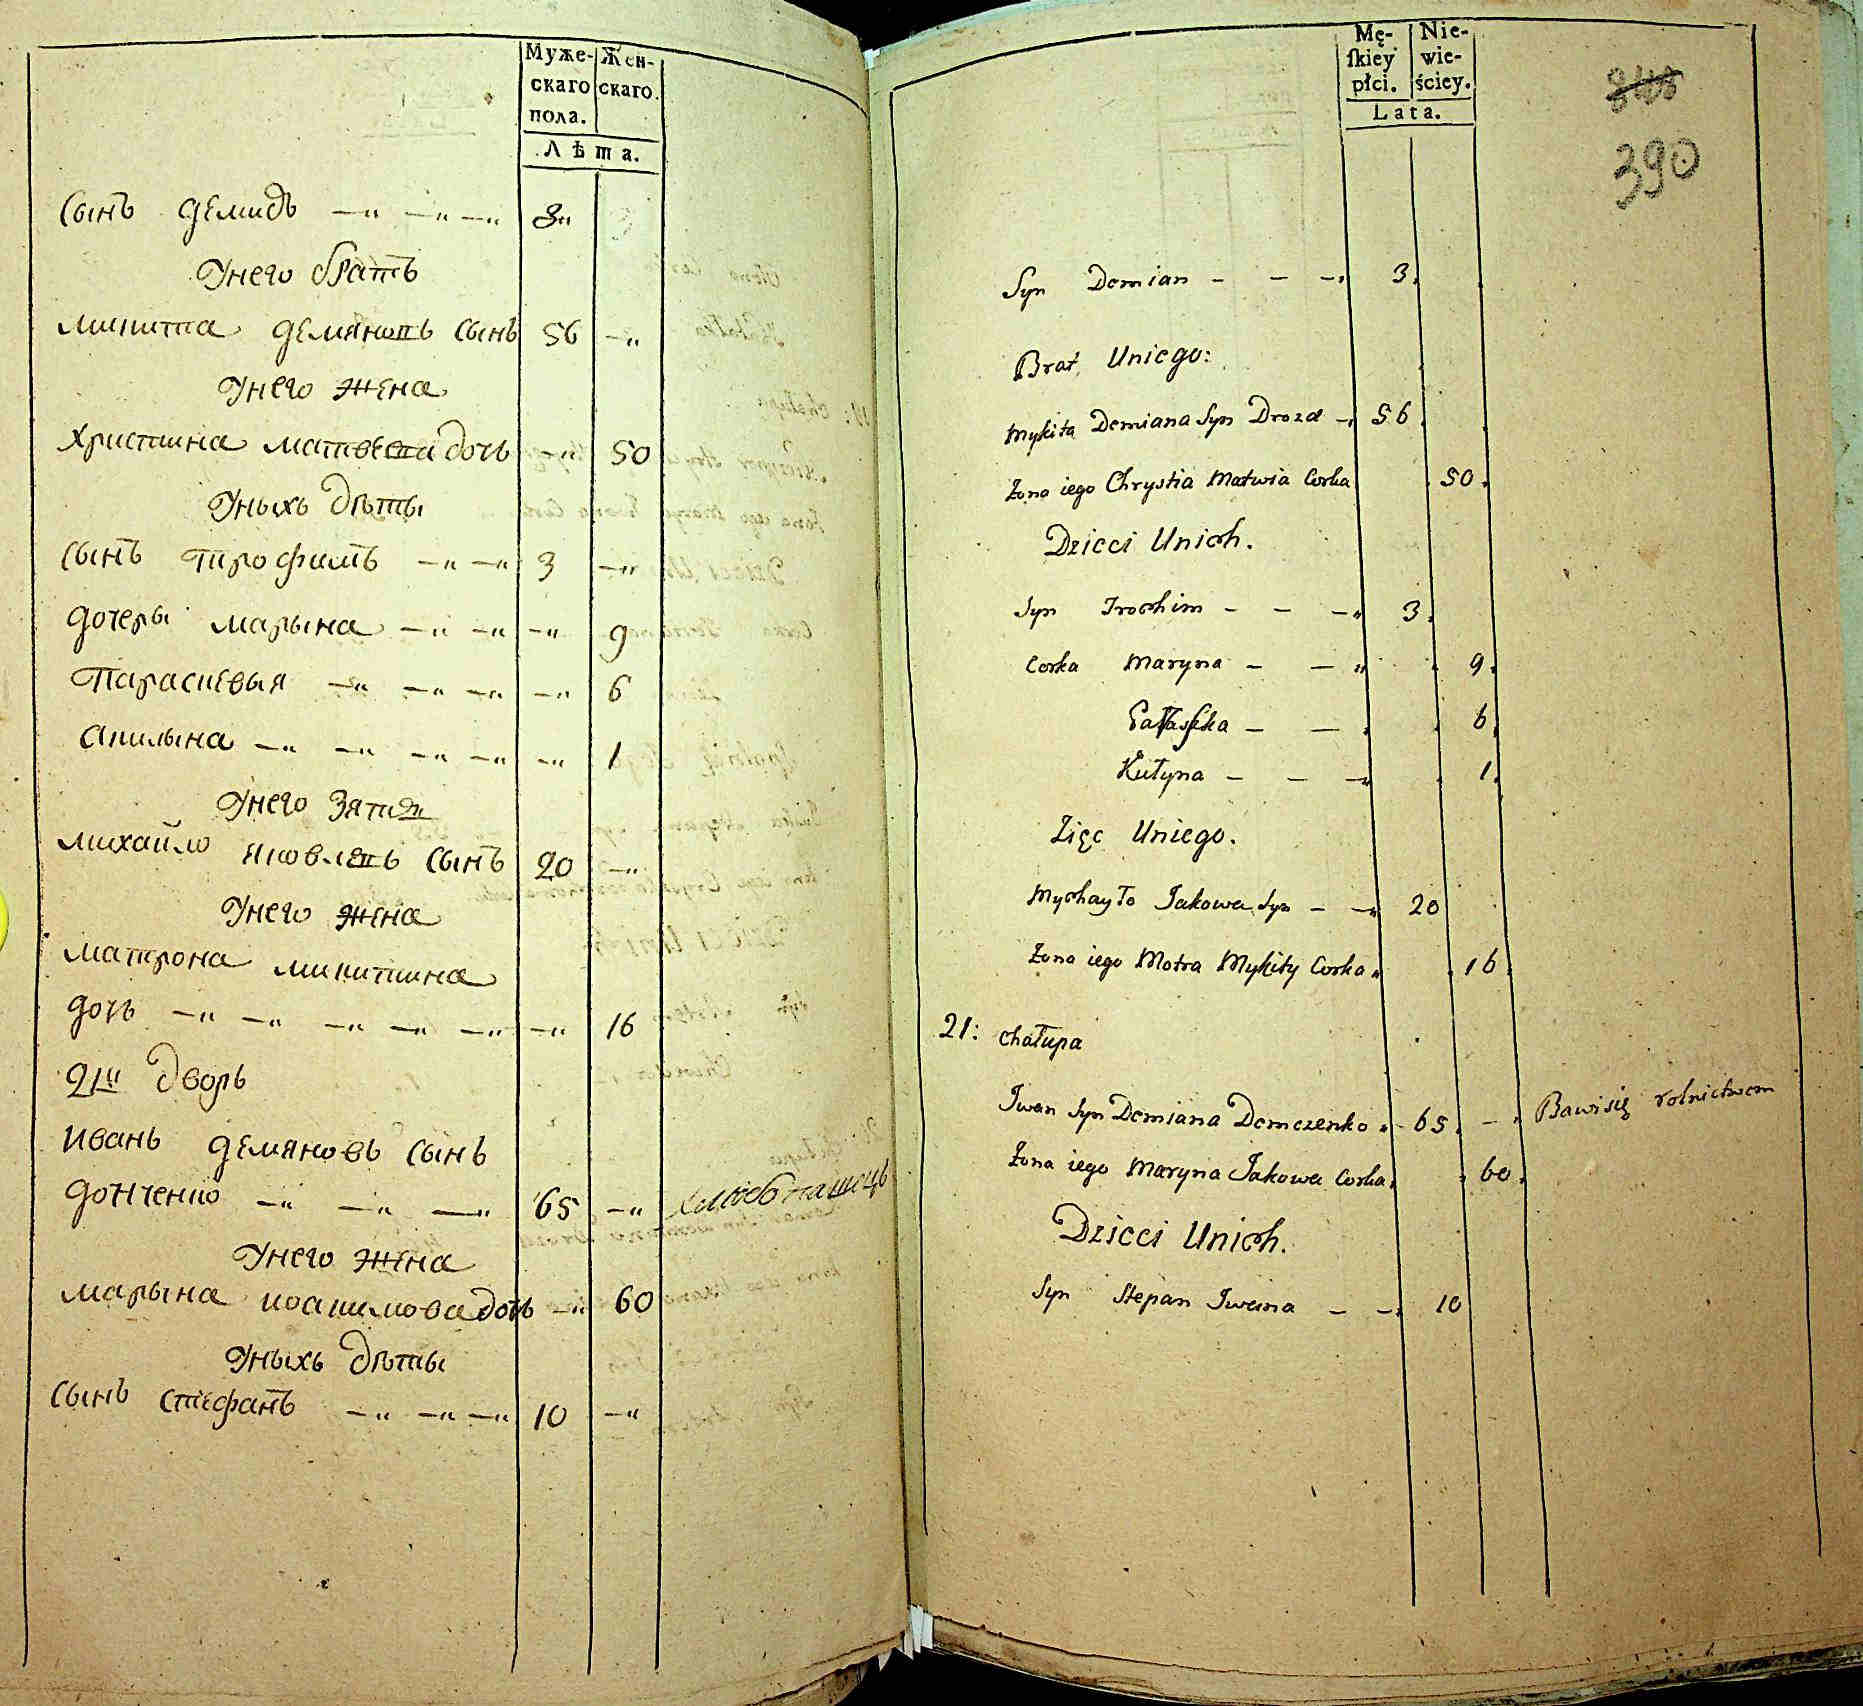 Муже- Жен-
скаго скаго.
пола.
Лѣта.
Сынъ Демидъ —„ —„ —„ 3„
Унего братъ
Микита Демяновъ Сынъ 56 —„
Унего жена
Христина Матвеева дочь —„ 50
Уныхъ дѣты
Сынъ Трофимъ —„ —„ 3 —„
Дочеры Марына —„ —„ —„ 9
Парасковыя —„ —„ —„ —„ 6
Акилына —„ —„ —„ —„ —„ 1
Унего Зять
Михайло Яковлевъ Сынъ 20 —„
Унего жена
Матрона Микитина
дочь —„ —„ —„ —„ —„ —„ 16
21й Дворъ
Иванъ Демяновъ Сынъ
Домченко —„ —„ —„ 65 —„ хлебопашецъ
Унего жена
Марына Иоакимова дочь —„ 60
Уныхъ дѣты
Сынъ Стефанъ —„ —„ —„ 10 —„
Mę- Nie-
ſkiey wie-
płci. ściey.
Lata.
390
Syn Demian — — —„ 3.
Brat Uniego:
Mykita Demiana Syn Drozd —„ 56
Żona iego Chrystia Matwia Corka 50.
Dzieci Unich.
Syn Trochim — — —„ 3.
Corka Maryna — —„ 9.
Parаska — — 6.
Kułyna — — — 1.
Zięc Uniego.
Mychayło Jakowa Syn — —„ 20
Żona iego Motra Mykity Corka„ 16
21: Chałupa
Iwan Syn Demiana Demczenko„ 65. —„ Bawi się rolnictwem
Żona iego Maryna Jakowa Corka. 60.
Dzieci Unich.
Syn Stepan Iwana — —„ 10